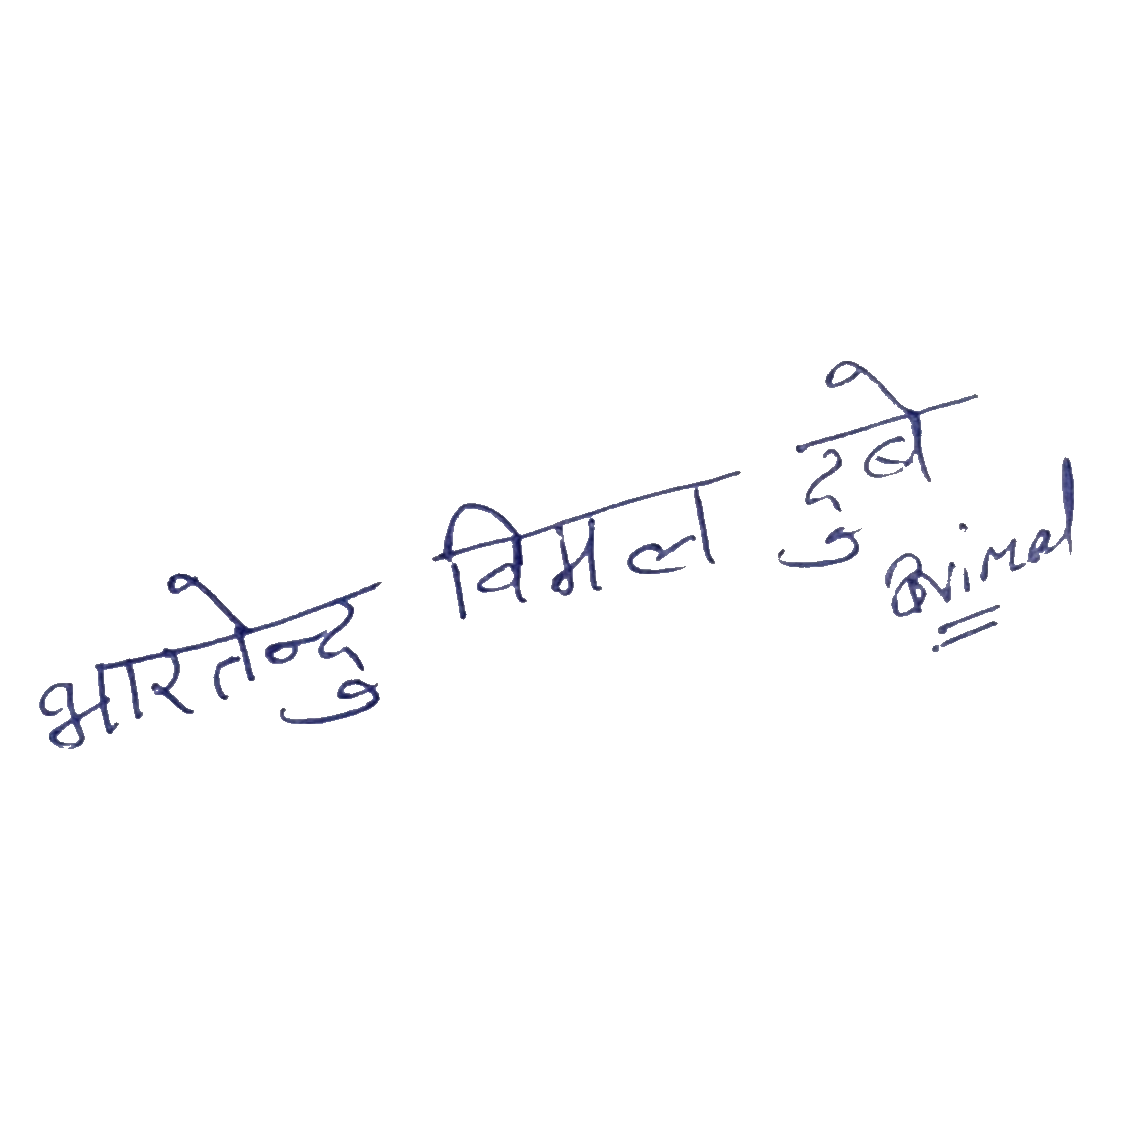 भारतेन्दु विमल दुबे
Bvimal